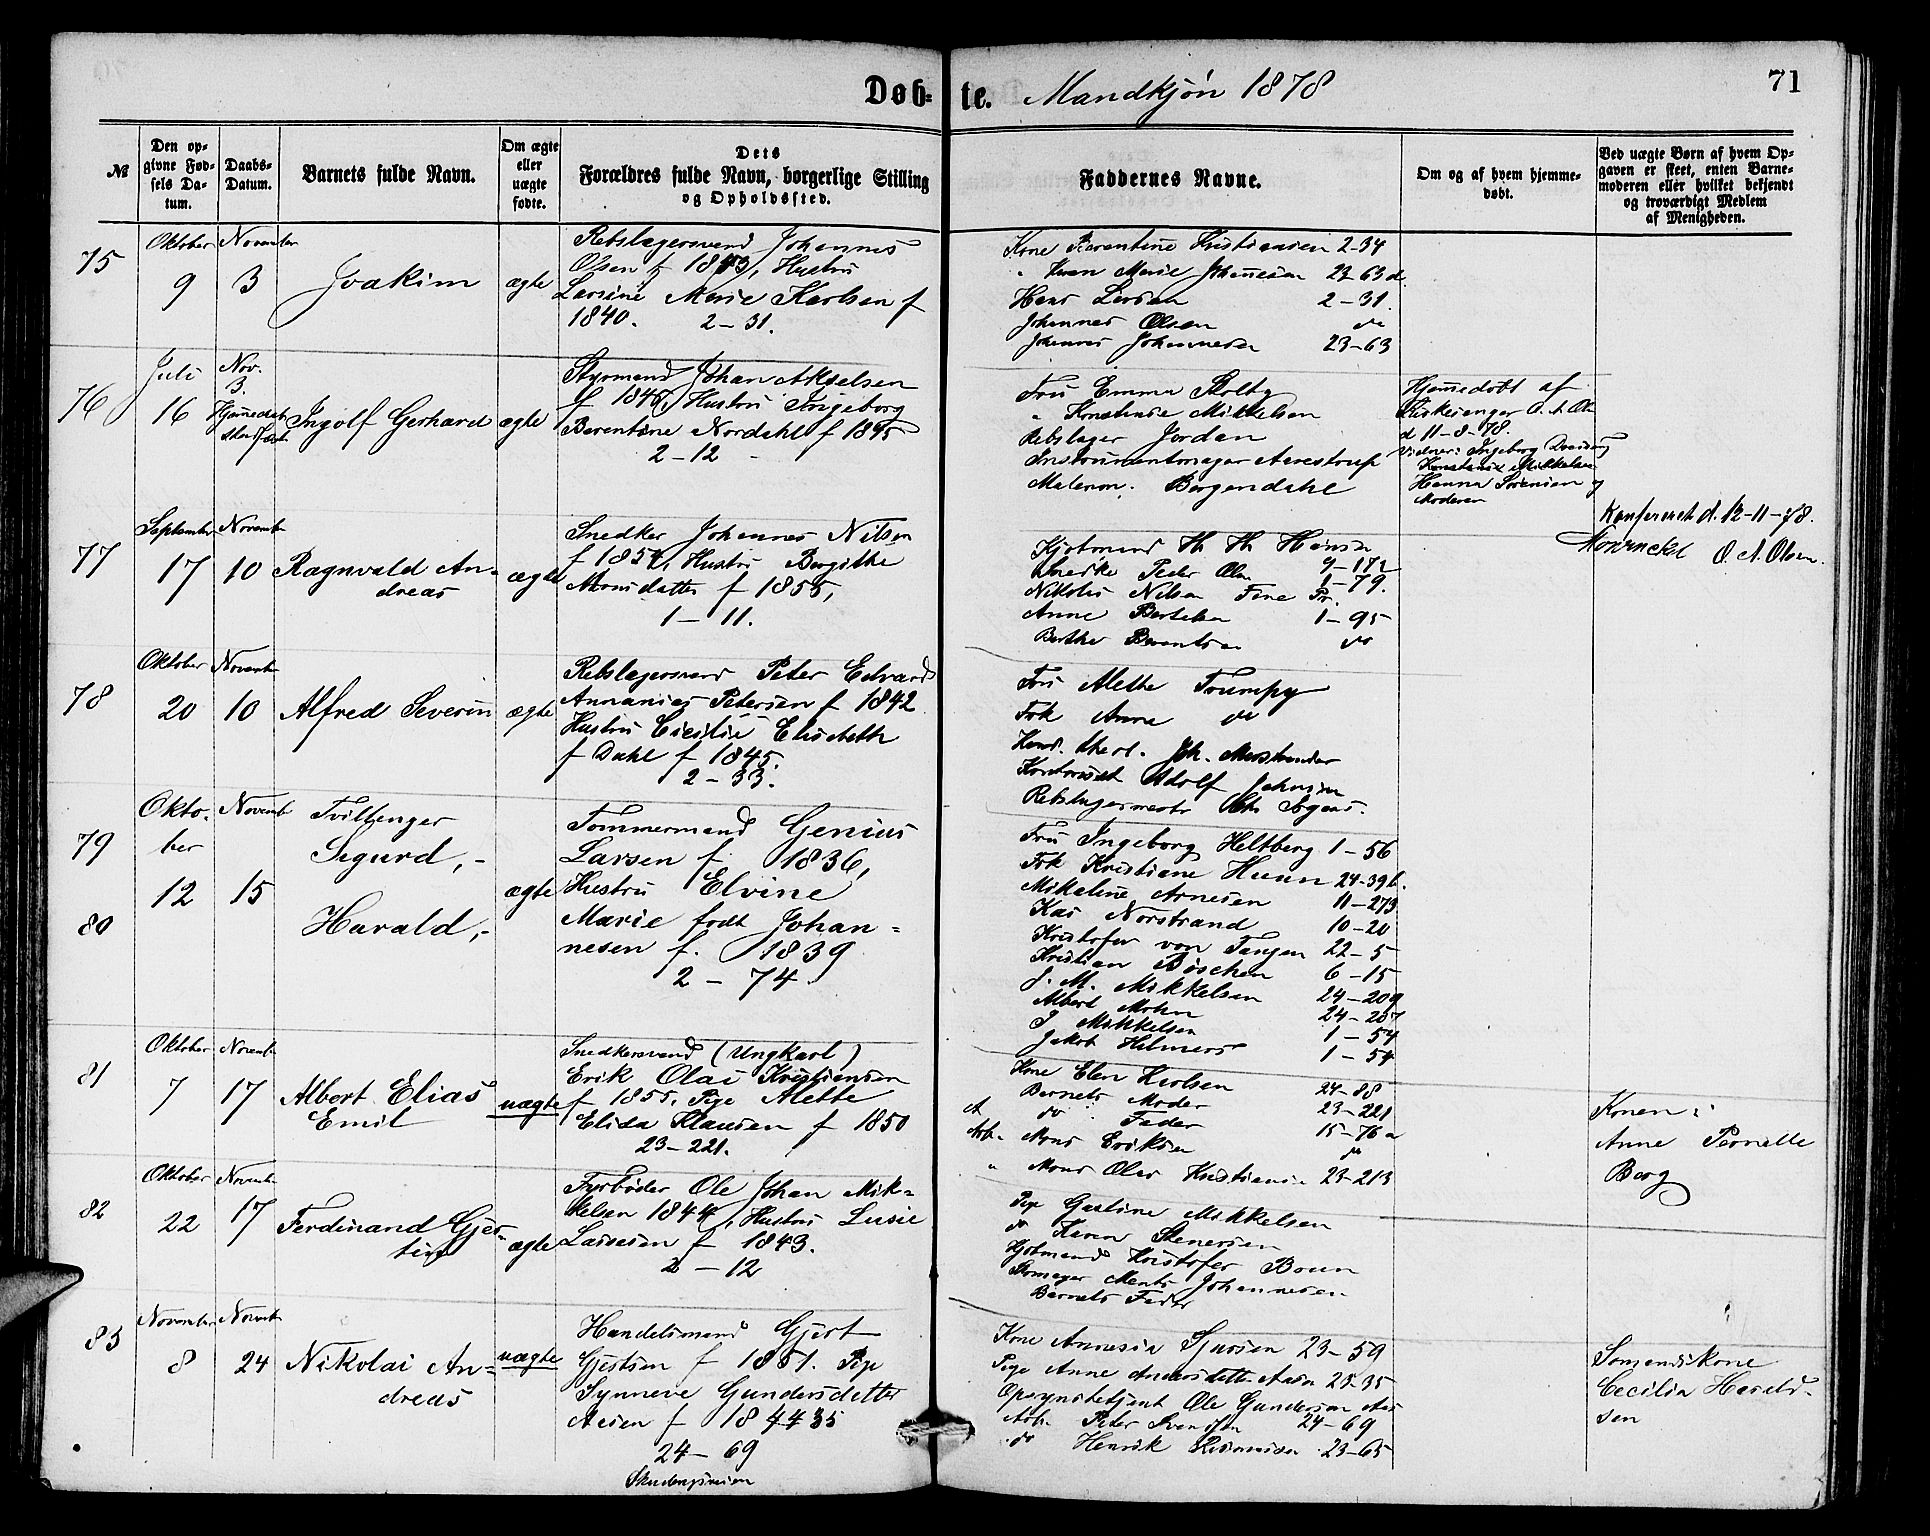 Døb-te. Mandkjøn 1878
71
№
Den op-
givne Fød-
sels Da-
tum.
Daabs-
Datum.
Barnets fulde Navn.
Om ægte
eller
uægte
fødte.
Dets
Forældres fulde Navn, borgerlige Stilling
og Opholdssted.
Faddernes Navne.
Om og af hvem hjemme-
døbt.
Ved uægte Børn af hvem Op-
gaven er skeet, enten Barne-
moderen eller hvilket bekjendt
og troværdigt Medlem
af Menigheden.
75
Oktober
9
November
3
Joakim
ægte
Rebslagersvend Johannes
Olsen f 1843, Hustru
Larsine Marie Karlsen f
1840. 2-31.
Kone Berentine Kristiansen 2-34
Marie Johannesen 23-63
Hans Larsen 2-31.
Johannes Olsen do
Johannes Johannesen 23-63
76
Juli
16
Nov.
3.
Ingolf Gerhard
ægte
Styrmand Johan Akselsen
f 1846, Hustru Ingeborg
Berentine Nordahl f 1845
2-12
Fru Emma Stolty
" Konstanse Mikkelsen
Rebslager Jordan
Instrumentmager Aarestrup
Malerm. Bergendahl
Hjemmedøbt af
Kirkesanger O. A. Ols
d 11-8-78.
Vidner: Ingeborg
Konstanse Mikkelsen
Hanna Sørensen og
Moderen
Konfereret d. 12-11-78.
O. A. Olsen.
77
September
17
November
10
Ragnvald An-
dreas
ægte
Snedker Johannes Nilsen
f 1854, Hustru Bergithe
Monsdatter f 1855,
1-11.
Kjøbmand Th Th Hansen
Snedker Peder Olsen 1-79.
Nikolai Nilsen
Anne Bertelsen 1-95
Berthe Berentsen do
78
Oktober
20
November
10
Alfred Severin
ægte
Rebslagersvend Peter Edvard
Annanias Petersen f 1842
Hustru Cicilie Elisabeth
f Dahl f 1845.
2-33.
Fru Alethe Trumpy
Frk Anna do
Kontorist Adolf Johnsen
79
Okto-
ber
12
November
15
Tvillinger
Sigurd,-
80
Harald,-
ægte
Tømmermand Genius
Larsen f 1836,
Hustru Elvine
Marie født Johan-
nesen f. 1839
2-74
Fru Ingeborg Heltberg 1-56
Frk Kristiane Huun 24-39b.
Mikaline Arnesen 11-273
Kas Norstrand 10-20
Kristofer von Tangen 22-5
Kristian Bøschen 6-15
J. M. Mikkelsen 24-209
Albert Mohn 24-207
J Mikkelsen 1-54
Jakob Helmers 1-54
81
Oktober
7
November
17
Albert Elias
Emil
uægte
Snedkersvend (Ungkarl)
Erik Olai Kristiansen
f 1855, Pige Alette
Elisa Klausen f 1850
23-221.
Kone Elen Karlsen 24-88
Barnets Moder 23-221
A do Fader 15-76a
Arb. Mons Eriksen do
" Mons Olai Kristiansen 23-213
Konen:
Anne Pernille
Berg
82
Oktober
22
November
17
Ferdinand Gjer-
tin
ægte
Fyrbøder Ole Johan Mik-
kelsen 1844, Hustru Lusie
Larsen f 1843.
2-12
Pige Gustine Mikkelsen
do Karen Stenersen
Kjøbmand Kristofer Bruun
Skomager Ments Johannesen
Barnets Fader
83
November
8
November
24
Nikolai An-
dreas
uægte
Handelsmand Gjert
Gjertsen f 1851. Pige
Synneve Gundersdatter
Aasen f 184435
24-69
Kone Annesia Sjursen 23-59
Pige Anne Andersdatter Aasen 23-35
Opsynsbetjent Ole Gundersen Aas
Arb. Peter Svendsen 24-69
do Henrik Rasmussen 23-65
Sømandskone
Cecilia Harald-
sen